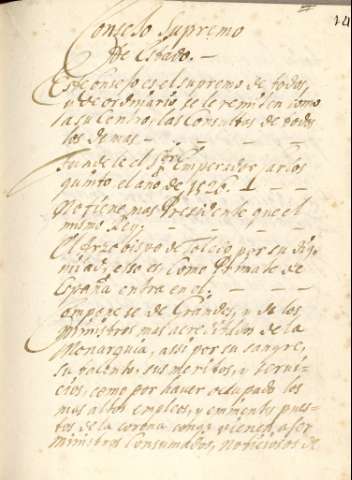 14
Consejo Supremo
de Estado. —
Este consejo es el supremo de todos,
y de ordinario se le remiten como
a su Centro, las Consultas de todos
los demas —
fundole el Sr. emperador carlos
quinto, el año de 1526. —
No tiene mas Presidente que el
mismo Rey. —
El Arzobispo de Toledo por su dig-
nidad, esto es, como Primate de
España entra en el. —
componese de Grandes, y de los
ministros mas acreditados de la
Monarquia, assi por su sangre,
su talento, sus meritos, y servi-
cios, como por haver ocupado los
mas altos empleos, y eminentes pues-
tos de la corona, conq̃ vienen, a ser
ministros consumados, noticiosos de